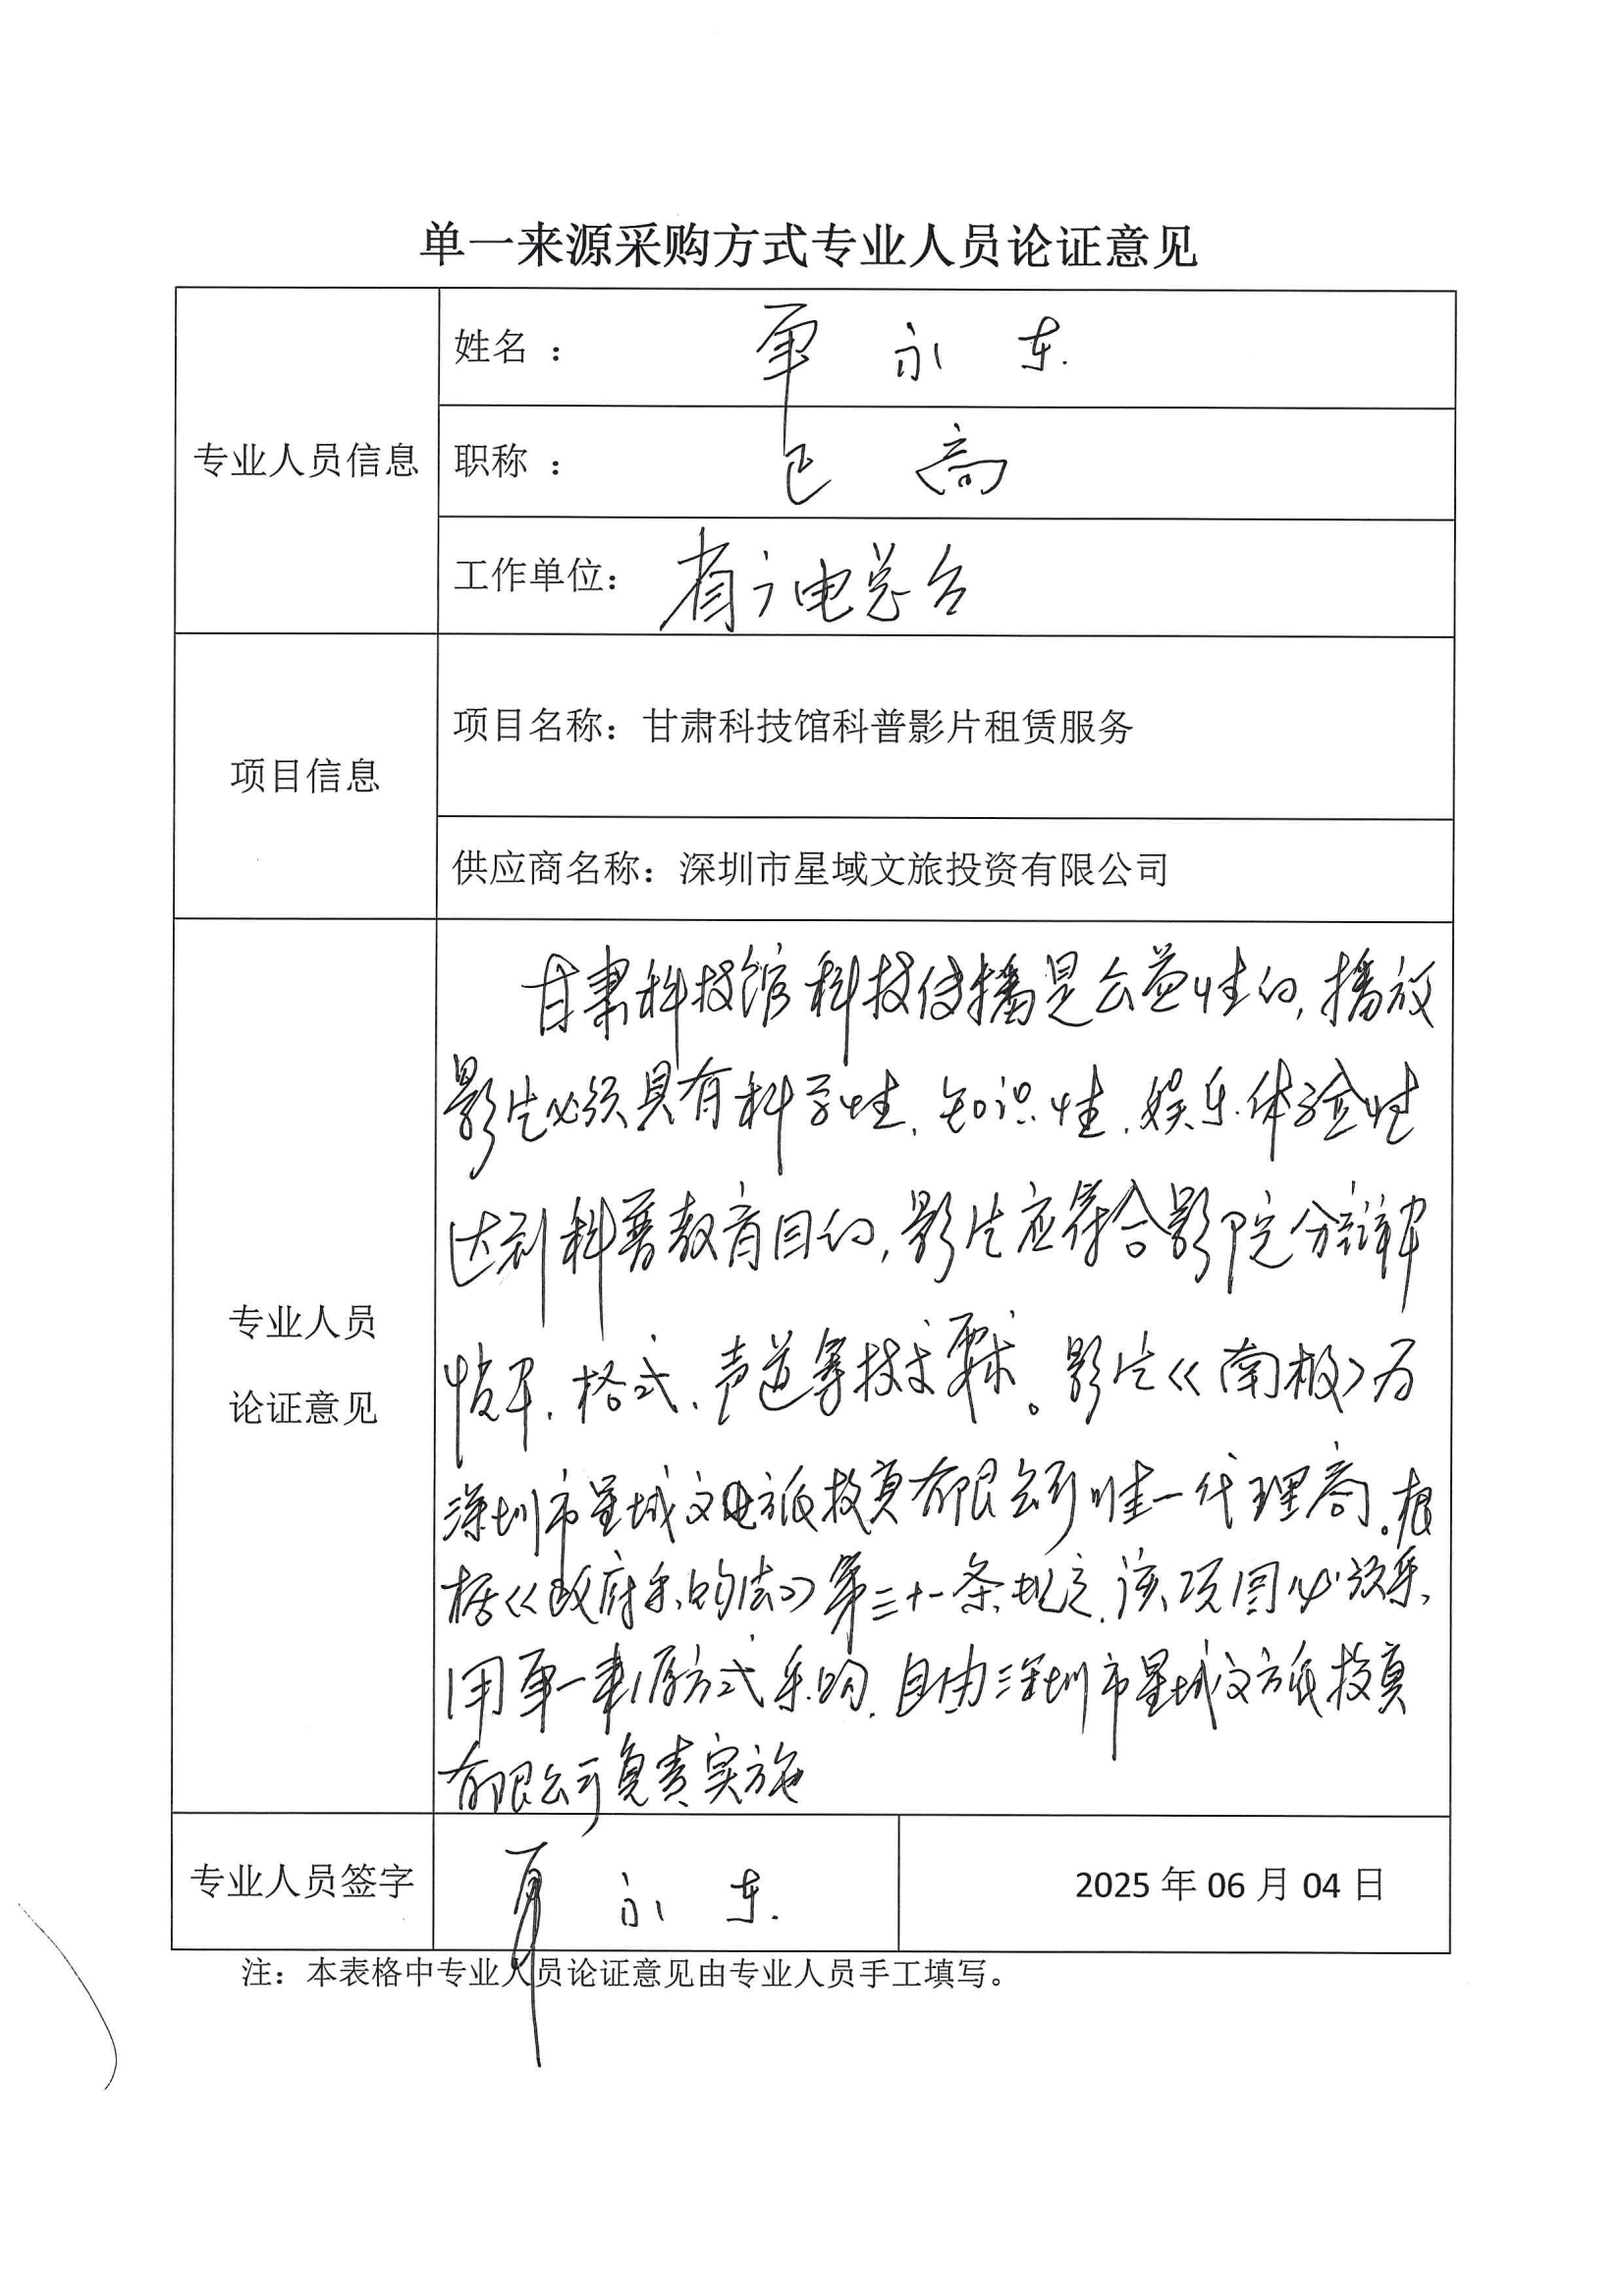 单一来源采购方式专业人员论证意见
专业人员信息
姓名 : 永东
职称 : 正高
工作单位: 省广电总台
项目信息
项目名称: 甘肃科技馆科普影片租赁服务
供应商名称: 深圳市星域文旅投资有限公司
专业人员
论证意见
甘肃科技馆科技传播是公益性的,播放
影片必须具有科学性、知识性、娱乐体验性
达到科普教育目的,影片应符合影院分辩率
帧率、格式、声道等技术要求。影片《南极》为
深圳市星域文旅投资有限公司唯一代理商。根
据《政府采购法》第三十一条规定,该项目必须采
用单一来源方式采购,且由深圳市星域文旅投资
有限公司负责实施
专业人员签字
永东
2025 年 06 月 04 日
注: 本表格中专业人员论证意见由专业人员手工填写。